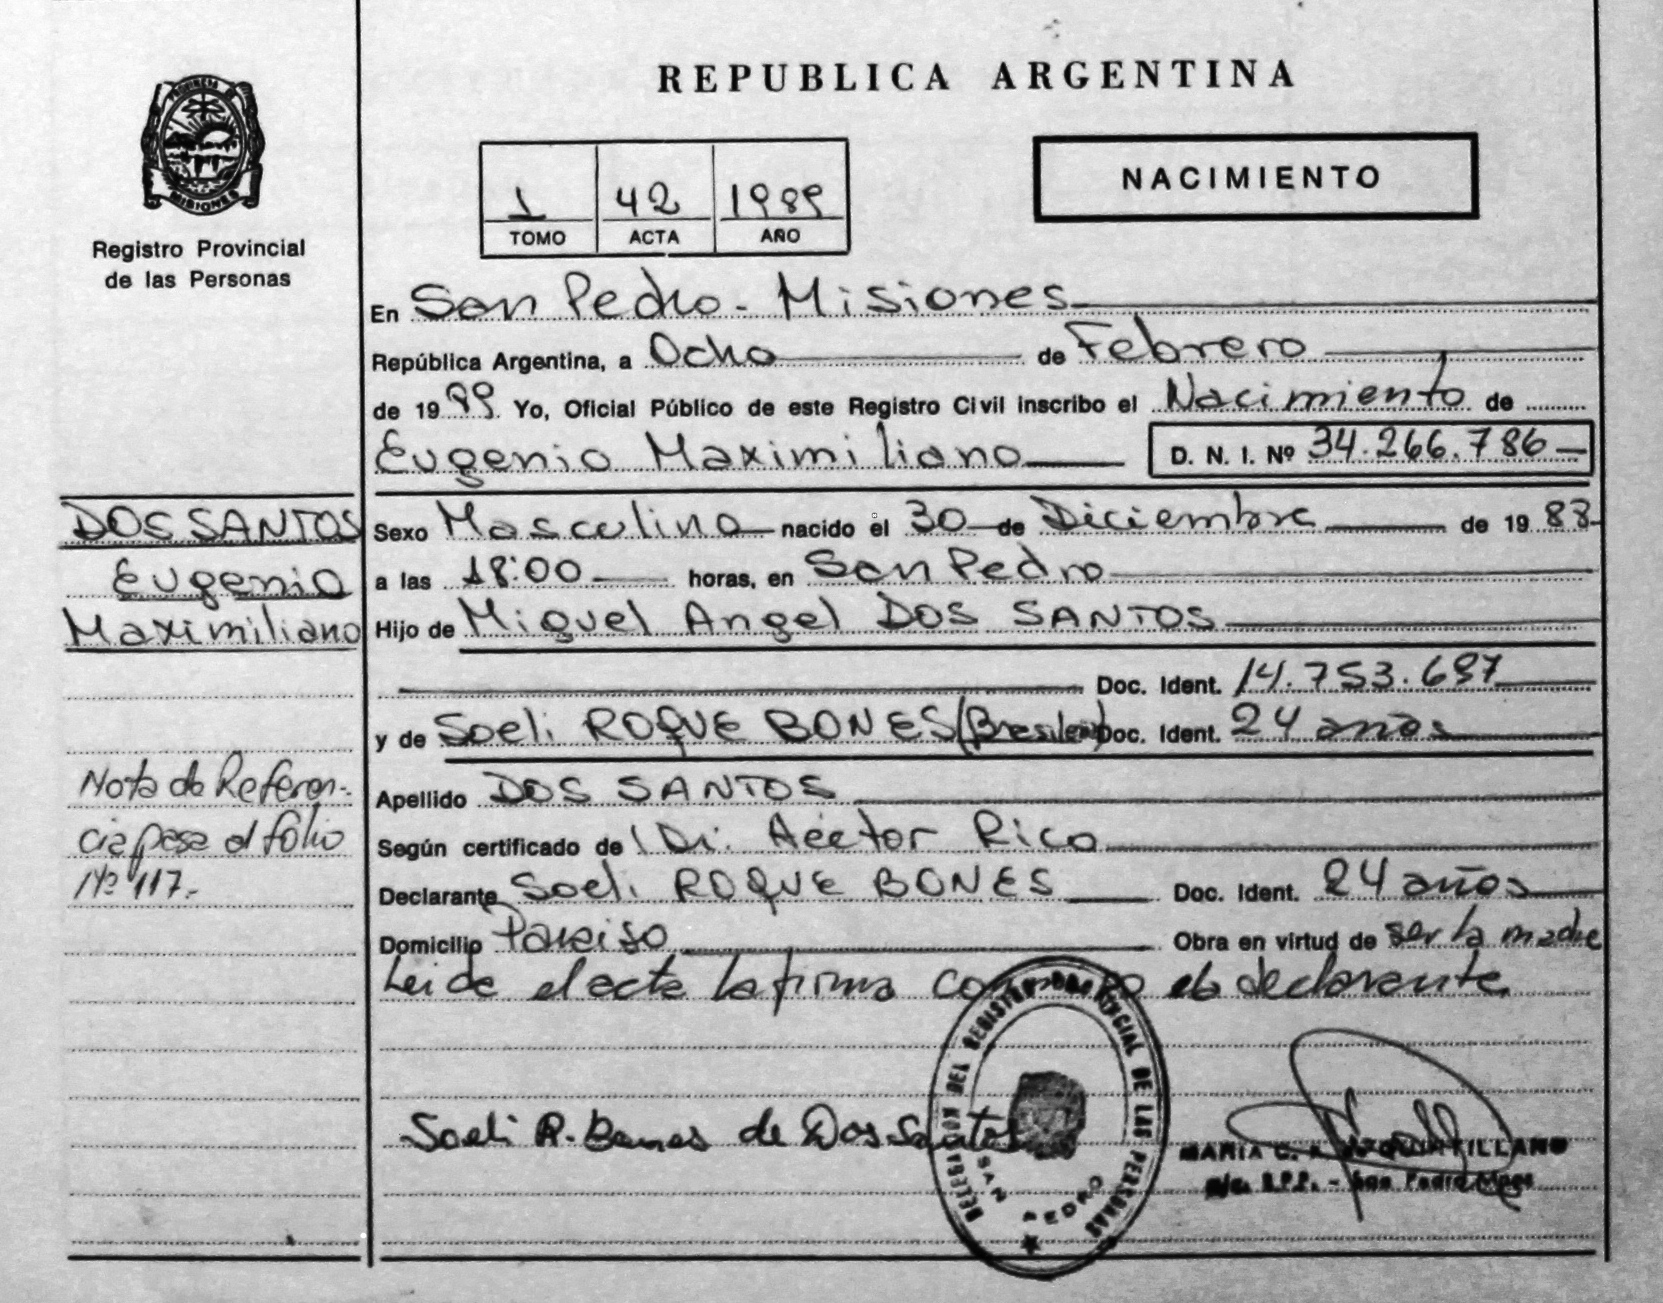 PROVINCIA D
MISIONES
Registro Provincial
de las Personas
REPUBLICA ARGENTINA
NACIMIENTO
1 42 1989
TOMO ACTA AÑO
En San Pedro - Misiones
República Argentina, a Ocho de Febrero
de 1989. Yo, Oficial Público de este Registro Civil inscribo el Nacimiento de
Eugenio Maximiliano D. N. I. Nº 34.266.786
DOS SANTOS
Eugenio
Maximiliano
Sexo Masculino nacido el 30 de Diciembre de 1988
a las 18:00 horas, en San Pedro
Hijo de Miguel Angel DOS SANTOS
Doc. Ident. 14.753.697
y de Soeli ROQUE BONES (Brasilera) Doc. Ident. 24 años
Nota de Referen-
cia pasa al folio
Nº 117.-
Apellido DOS SANTOS
Según certificado de Dr. Hector Rico
Declarante Soeli ROQUE BONES Doc. Ident. 24 años
Domicilio Paraiso Obra en virtud de ser la madre
Leida el acta la firma conmigo el declarante
Soeli R. Bones de Dos Santos
DELEGACION DEL REGISTRO PROVINCIAL DE LAS PERSONAS
SAN PEDRO
MARIA C. QUINTILLANO
R.P.P. - San Pedro Mnes